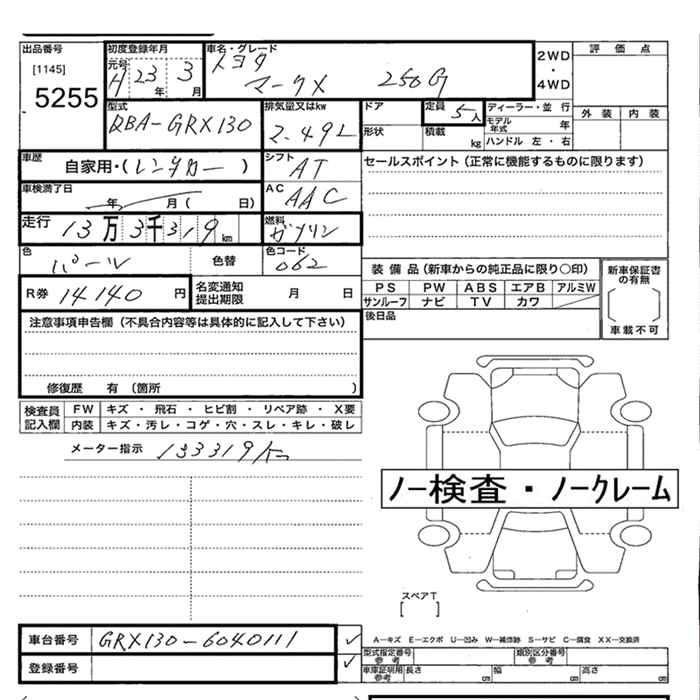 出品番号 初度登録年月 車名・グレード 評価点
[1145] 元号 H 23 年 3 月 トヨタ 2WD
5255 マークX 250G ・4WD
型式 排気量又はkw ドア 定員 5人 ディーラー・並行 外装 内装
DBA-GRX130 2.49L 形状 積載 kg モデル年式 年
ハンドル 左・右
車歴 自家用・(レンタカー) シフト AT セールスポイント(正常に機能するものに限ります)
車検満了日 年 月( 日) AC AAC
走行 13万3千319km 燃料 ガソリン
色 パール 色替 色コード 062
装備品(新車からの純正品に限り○印) 新車保証書の有無
R券 14140円 名変通知提出期限 月 日 PS PW ABS エアB アルミW
サンルーフ ナビ TV カワ
注意事項申告欄(不具合内容等は具体的に記入して下さい) 後日品 車載不可
修復歴 有 (箇所 )
検査員 FW キズ・飛石・ヒビ割・リペア跡・X要
記入欄 内装 キズ・汚レ・コゲ・穴・スレ・キレ・破レ
メーター指示 133319km
ノー検査・ノークレーム
スペアT
[ ]
車台番号 GRX130-6040111 A-キズ E-エクボ U-凹み W-補修跡 S-サビ C-腐食 XX-交換済
登録番号 型式指定番号 参考 類別区分番号 参考
車庫証明用 参考 長さ cm 幅 cm 高さ cm